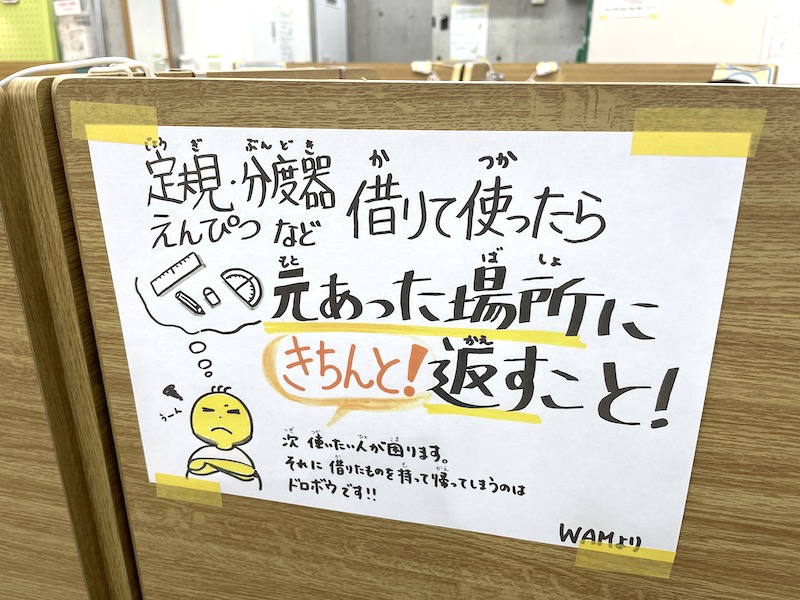 定規・分度器
えんぴつ など
借りて使ったら
元あった場所に
きちんと!返すこと!
うーん
次 使いたい人が困ります。
それに 借りたものを持って帰ってしまうのは
ドロボウです!!
WAMより